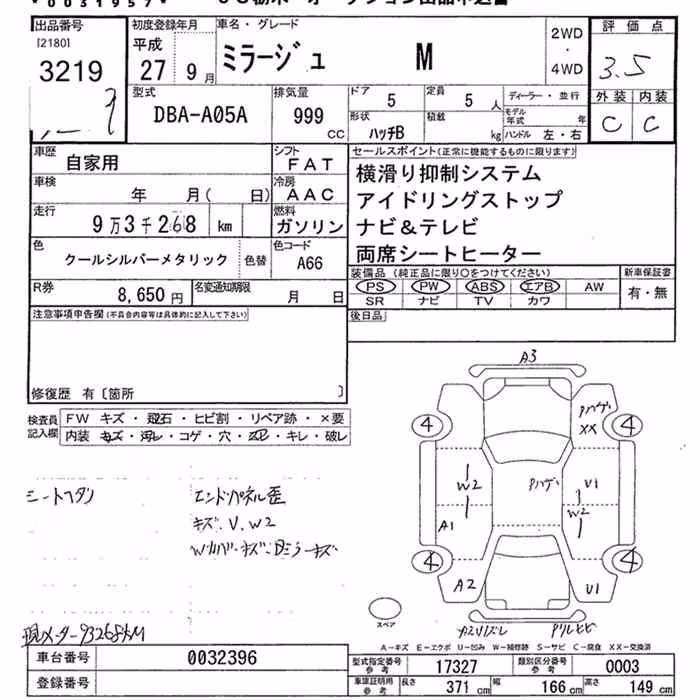 *0031957*
出品番号 初度登録年月 車名・グレード 2WD 評価点
[2180]
3219 平成 27 9月 ミラージュ M ・ 3.5
4WD
型式 排気量 ドア 定員 ディーラー・並行 外装 内装
DBA-A05A 999 CC 5 5人 モデル年式 年 C C
形状 ハッチB 積載 kg ハンドル 左・右
車歴 自家用 シフト FAT セールスポイント(正常に機能するものに限ります)
車検 年 月( 日) 冷房 AAC 横滑り抑制システム
アイドリングストップ
走行 9万3千268 km 燃料 ガソリン ナビ&テレビ
両席シートヒーター
色 クールシルバーメタリック 色替 色コード A66
装備品(純正品に限り○をつけてください) 新車保証書
R券 8,650円 名変通知期限 月 日 PS PW ABS エアB AW 有・無
SR ナビ TV カワ
注意事項申告欄(不具合内容等は具体的に記入して下さい) 後日品
修復歴 有〔箇所 〕
A3
検査員 FW キズ・飛石・ヒビ割・リペア跡・×要
記入欄 内装 キズ・汚レ・コゲ・穴・スレ・キレ・破レ
4 Pハゲ XX 4
W2 Pハゲ U1
W2
A1
シートヘタリ エンドパネル歪
キズ、U、W2
4 4
A2 U1
スペア
現メーター93268KM
A-キズ E-エクボ U-凹み W-補修跡 S-サビ C-腐食 XX-交換済
車台番号 0032396 型式指定番号 参考 17327 類別区分番号 参考 0003
登録番号 車庫証明用 参考 長さ 371cm 幅 166cm 高さ 149cm